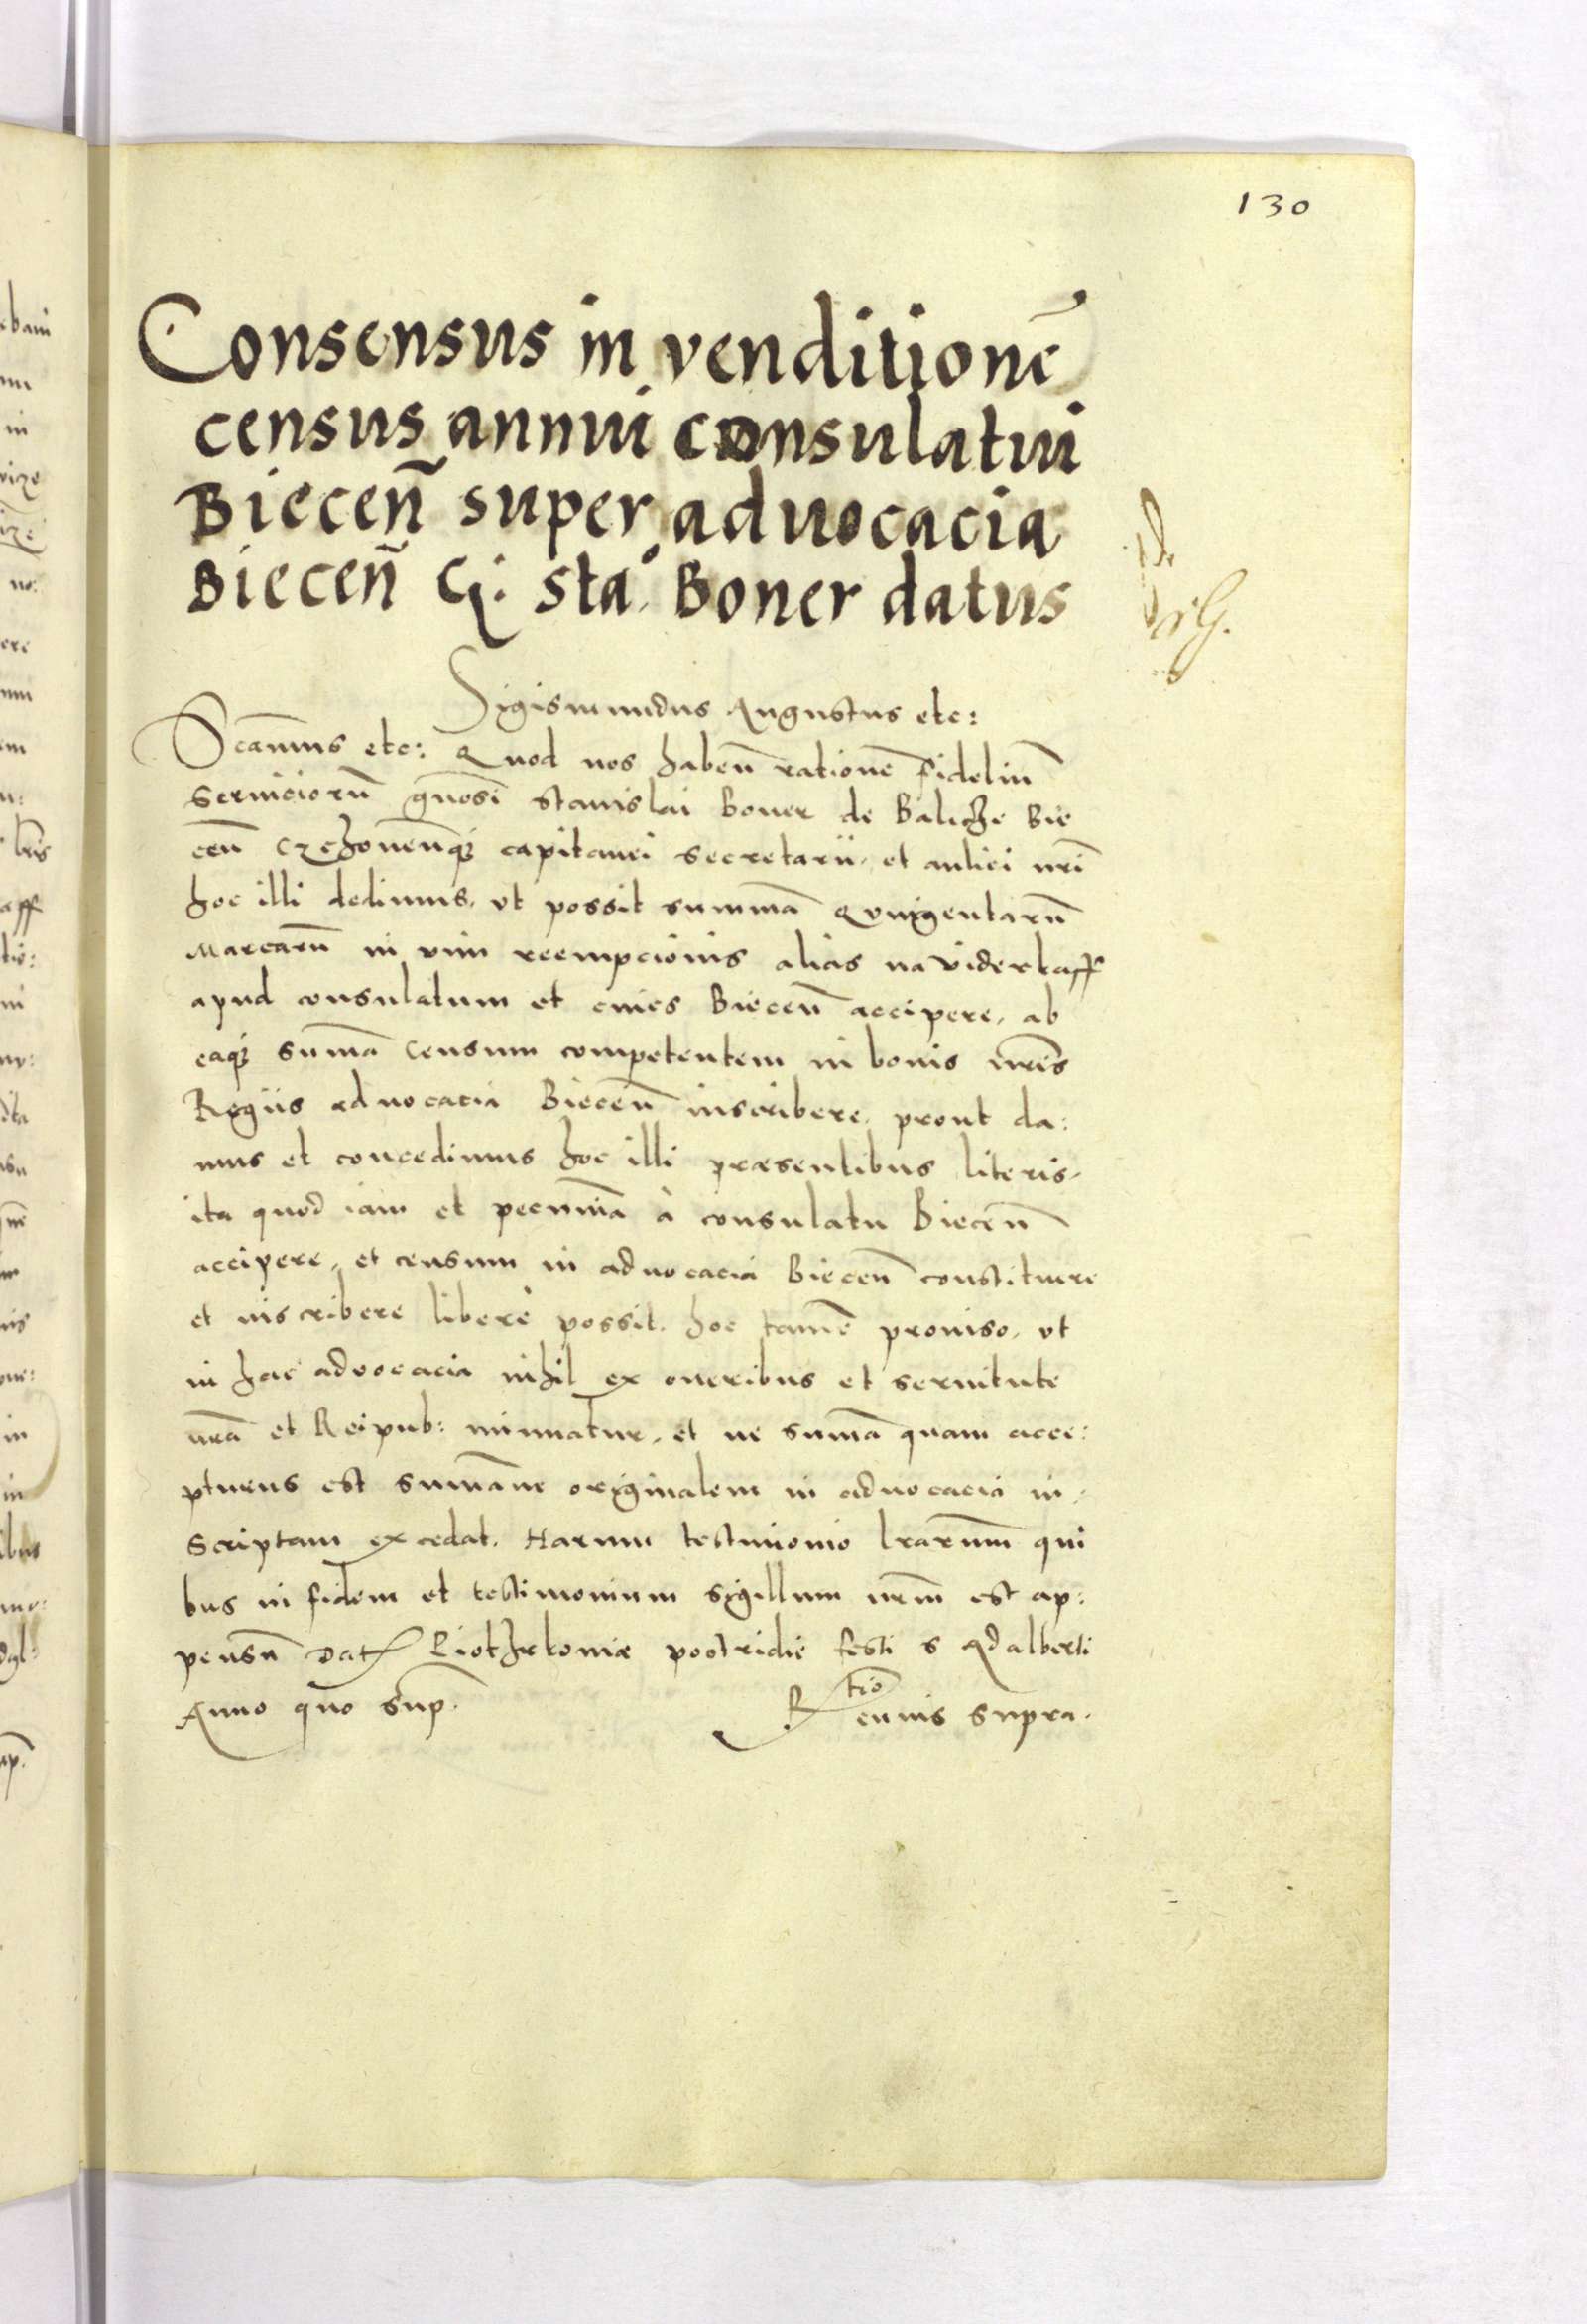 130
Consensus in venditionē
census annui consulatui
Biecen̄ super advocacia
Biecen̄ G: sta: Boner datus
Sigismundus Augustus etc:
Scāmus etc: Quod nos haben̄ rationē fidelium̄
serviciorū gn̄osi Stanislai Boner de Baliche Bie
cen̄ Czchonen̄qꝫ capitanei secretarii, et aulici nrī
hoc illi dedimus, ut possit summā Quingentarū
Marcarū in vim reempcionis alias na viderkaff
apud consulatum et cives Biecen̄ accipere, ab
eaqꝫ sumā censum competentem in bonis nrīs
Regiis advocacia Biecen̄ inscribere, prout da:
mus et concedimus hoc illi præsentibus literis,
ita quod iam et pecuniā à consulatu Biecen̄
accipere, et censum in advocacia Biecen̄ constituere
et inscribere liberè possit. hoc tamē proviso, ut
in hac advocacia nihil ex oneribus et servitute
nrā et Reipub: minuatur, et ne sumā quam acce:
pturus est sumāne originalem in advocacia in,
scriptam excedat. Harum testimonio lrarum̄ qui
bus in fidem et testimonium sigillum nrm̄ est ap:
pensū Dat Piothrkoviæ postridie festi s Adalberti
Anno quo sup.
Rtio eiuis supra.